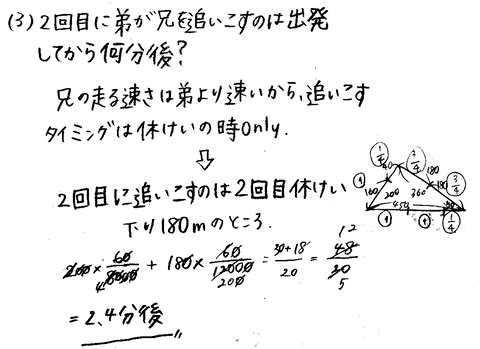 (3) 2回目に弟が兄を追いこすのは出発
してから何分後?
兄の走る速さは弟より速いから、追いこす
タイミングは休けいの時only.
⇩
2回目に追いこすのは2回目休けい
下り180mのところ.
200 × 60/8000 + 180 × 60/12000 = 30+18/20 = 48/20
4 200 12 5
= 2.4分後
1/4 3/4 180
160 200 360 180 3/4
450
① ① 1/4